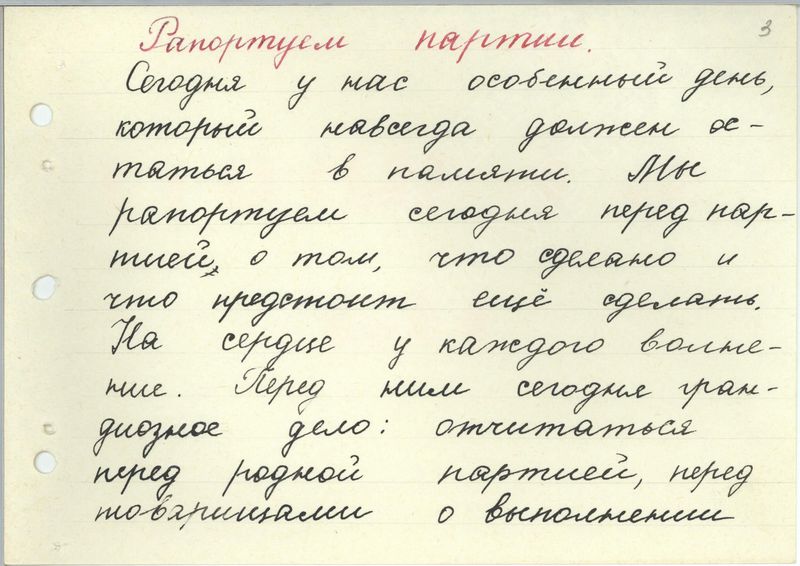 3
Рапортуем партии.
Сегодня у нас особенный день,
который навсегда должен ос-
таться в памяти. Мы
рапортуем сегодня перед пар-
тией, о том, что сделано и
что предстоит ещё сделать.
На сердце у каждого волне-
ние. Перед ним сегодня гран-
диозное дело: отчитаться
перед родной партией, перед
товарищами о выполнении